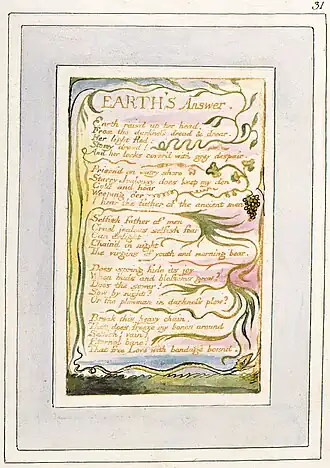 31
EARTH'S Answer.
Earth rais'd up her head,
From the darkness dread & drear.
Her light fled:
Stony dread!
And her locks cover'd with grey despair.
Prison'd on watry shore
Starry Jealousy does keep my den
Cold and hoar
Weeping o'er
I hear the father of the ancient men
Selfish father of men
Cruel jealous selfish fear
Can delight
Chain'd in night
The virgins of youth and morning bear.
Does spring hide its joy
When buds and blossoms grow?
Does the sower?
Sow by night?
Or the plowman in darkness plow?
Break this heavy chain.
That does freeze my bones around
Selfish! vain!
Eternal bane!
That free Love with bondage bound.